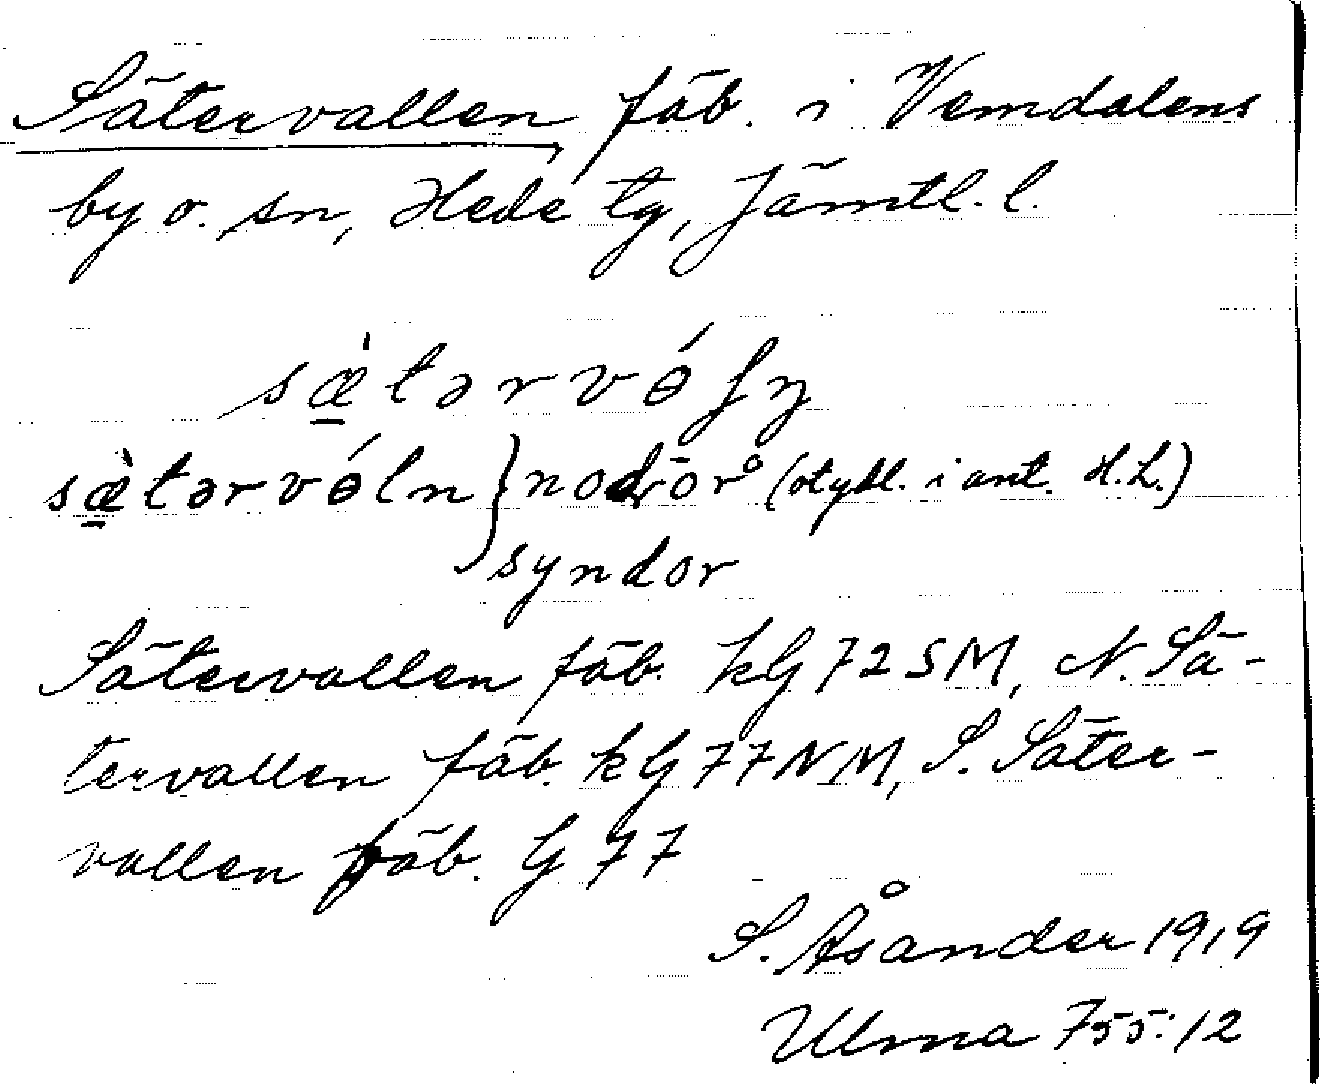 Sätervallen fäb. i Vemdalens
by o. sn, Hede tg, Jämtl. l.
sæ̀tərvɵ́ſn̥
sæ̀tərvɵ́ln } nodrōr (otydl. i ant. H.L.)
syndor
Sätervallen fäb. kG 72 SM, N. Sä-
tervallen fäb. kG 77 NM, S. Säter-
vallen fäb. G 77
S. Åsander 1919
Ulma 755:12